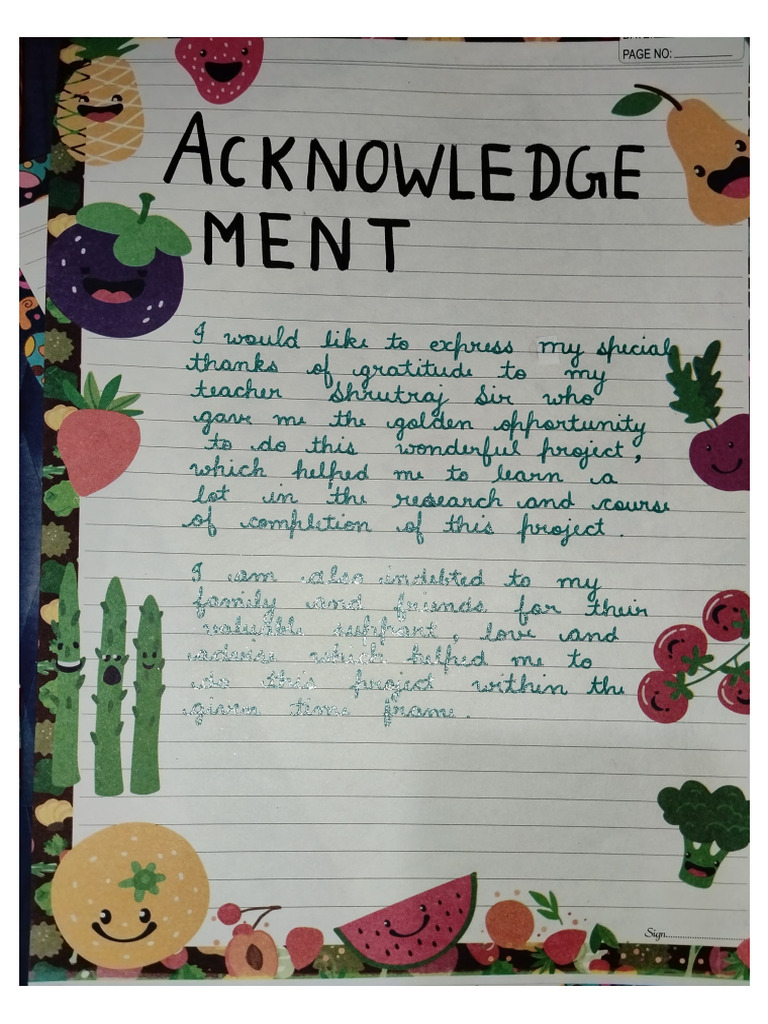 PAGE NO:
ACKNOWLEDGE
MENT
I would like to express my special
thanks of gratitude to my
teacher Shrutraj Sir who
gave me the golden opportunity
to do this wonderful project,
which helped me to learn a
lot in the research and course
of completion of this project.
I am also indebted to my
family and friends for their
valuable support, love and
advice which helped me to
do this project within the
given time frame.
Sign